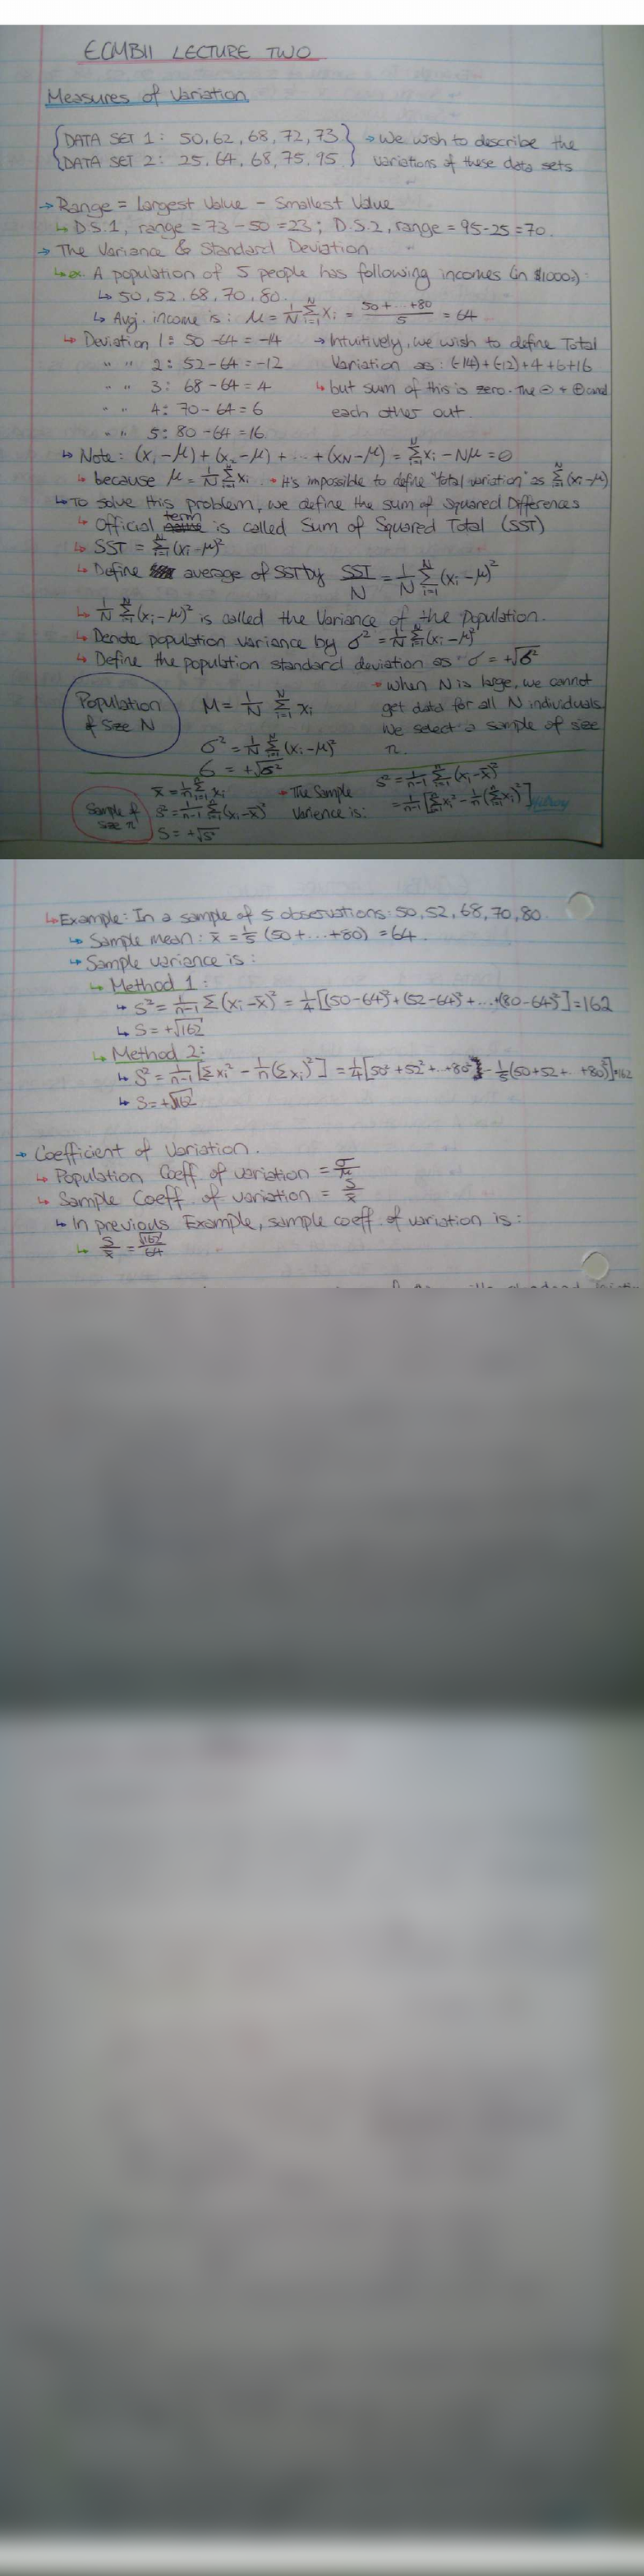 ECMB11 LECTURE TWO
Measures of Variation
DATA SET 1: 50, 62, 68, 72, 73 → We wish to describe the
DATA SET 2: 25, 64, 68, 75, 95 variations of these data sets
→ Range = Largest Value - Smallest Value
↳ D.S.1, range = 73 - 50 = 23; D.S.2, range = 95-25 = 70.
→ The Variance & Standard Deviation
↳ ex. A population of 5 people has following incomes (in $1000s):
↳ 50, 52, 68, 70, 80.
↳ Avg. income is: μ = 1/N Σ_{i=1}^{N} xᵢ = (50 + ... + 80)/5 = 64
↳ Deviation 1: 50 - 64 = -14 → Intuitively, we wish to define Total
" " 2: 52 - 64 = -12 Variation as: (-14) + (-12) + 4 + 6 + 16
" " 3: 68 - 64 = 4 ↳ but sum of this is zero. The ⊖ + ⊕ cancel
" " 4: 70 - 64 = 6 each other out.
" " 5: 80 - 64 = 16
↳ Note: (x₁ - μ) + (x₂ - μ) + ... + (x_N - μ) = Σ_{i=1}^{N} xᵢ - Nμ = 0
↳ because μ = 1/N Σ_{i=1}^{N} xᵢ. → It's impossible to define "total variation" as Σ_{i=1}^{N} (xᵢ - μ)
↳ To solve this problem, we define the sum of Squared Differences
↳ Official term is called Sum of Squared Total (SST)
↳ SST = Σ_{i=1}^{N} (xᵢ - μ)²
↳ Define average of SST by SST/N = 1/N Σ_{i=1}^{N} (xᵢ - μ)²
↳ 1/N Σ_{i=1}^{N} (xᵢ - μ)² is called the Variance of the population.
↳ Denote population variance by σ² = 1/N Σ_{i=1}^{N} (xᵢ - μ)²
↳ Define the population standard deviation as σ = +√σ²
Population of Size N
μ = 1/N Σ_{i=1}^{N} xᵢ
σ² = 1/N Σ_{i=1}^{N} (xᵢ - μ)²
σ = +√σ²
→ When N is large, we cannot
get data for all N individuals.
We select a sample of size
n.
Sample of size n
x̄ = 1/n Σ_{i=1}^{n} xᵢ
s² = 1/(n-1) Σ_{i=1}^{n} (xᵢ - x̄)²
S = +√s²
→ The Sample
Varience is:
s² = 1/(n-1) Σ_{i=1}^{n} (xᵢ - x̄)²
= 1/(n-1) [Σ_{i=1}^{n} xᵢ² - 1/n (Σ_{i=1}^{n} xᵢ)²]
Hilroy
↳ Example: In a sample of 5 observations: 50, 52, 68, 70, 80.
↳ Sample mean: x̄ = 1/5 (50 + ... + 80) = 64.
↳ Sample variance is:
↳ Method 1:
↳ S² = 1/(n-1) Σ (xᵢ - x̄)² = 1/4 [(50-64)² + (52-64)² + ... + (80-64)²] = 162
↳ S = +√162
↳ Method 2:
↳ S² = 1/(n-1) [Σxᵢ² - 1/n (Σxᵢ)²] = 1/4 [50² + 52² + ... + 80² - 1/5 (50 + 52 + ... + 80)²] = 162
↳ S = +√162
→ Coefficient of Variation.
↳ Population Coeff. of variation = σ/μ
↳ Sample Coeff of variation = s/x̄
↳ In previous Example, sample coeff. of variation is:
↳ s/x̄ = √162/64